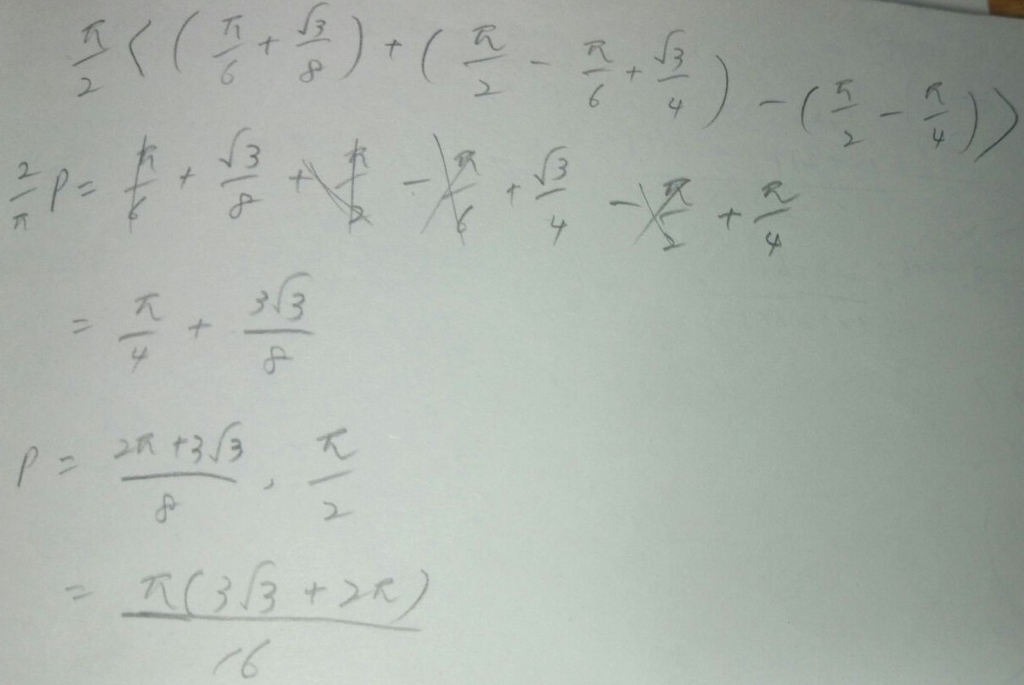 π/2 < (π/6 + √3/8) + (π/2 - π/6 + √3/4) - (π/2 - π/4) >
2/π P = π/6 + √3/8 + π/2 - π/6 + √3/4 - π/2 + π/4
= π/4 + 3√3/8
P = 2π+3√3/8 , π/2
= π(3√3 + 2π)/16